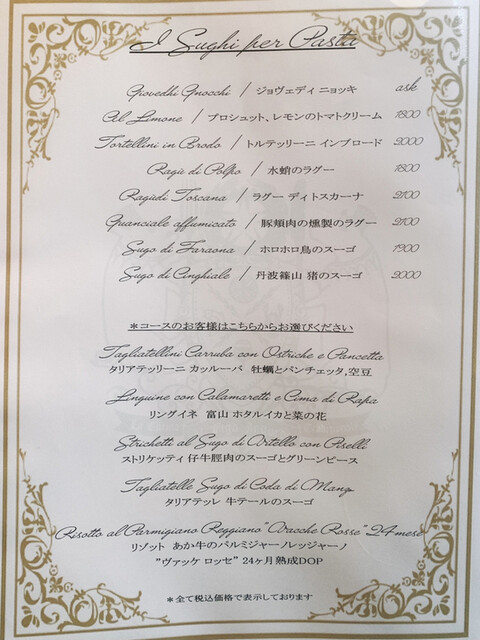 I Sughi per Pasta
Giovedhi Gnocchi / ジョヴェディ ニョッキ ask
Al Limone / プロシュット、レモンのトマトクリーム 1800
Tortellini in Brodo / トルテッリーニ インブロード 2000
Ragù di Polpo / 水蛸のラグー 1800
Ragùdi Toscana / ラグー ディトスカーナ 2100
Guanciale affumicato / 豚頬肉の燻製のラグー 2100
Sugo di Faraona / ホロホロ鳥のスーゴ 1900
Sugo di Cinghiale / 丹波篠山 猪のスーゴ 2000
*コースのお客様はこちらからお選びください
Tagliatellini Carruba con Ostriche e Pancetta
タリアテッリーニ カッルーバ 牡蠣とパンチェッタ,空豆
Linguine con Calamaretti e Cima di Rapa
リングイネ 富山 ホタルイカと菜の花
Strichetti al Sugo di Ortello con Piselli
ストリケッティ 仔牛脛肉のスーゴとグリーンピース
Tagliatelle Sugo di Coda di Manzo
タリアテッレ 牛テールのスーゴ
Risotto al Parmigiano Reggiano "Vacche Rosse" 24mese
リゾット あか牛のパルミジャーノレッジャーノ
"ヴァッケ ロッセ" 24ヶ月熟成DOP
*全て税込価格で表示しております